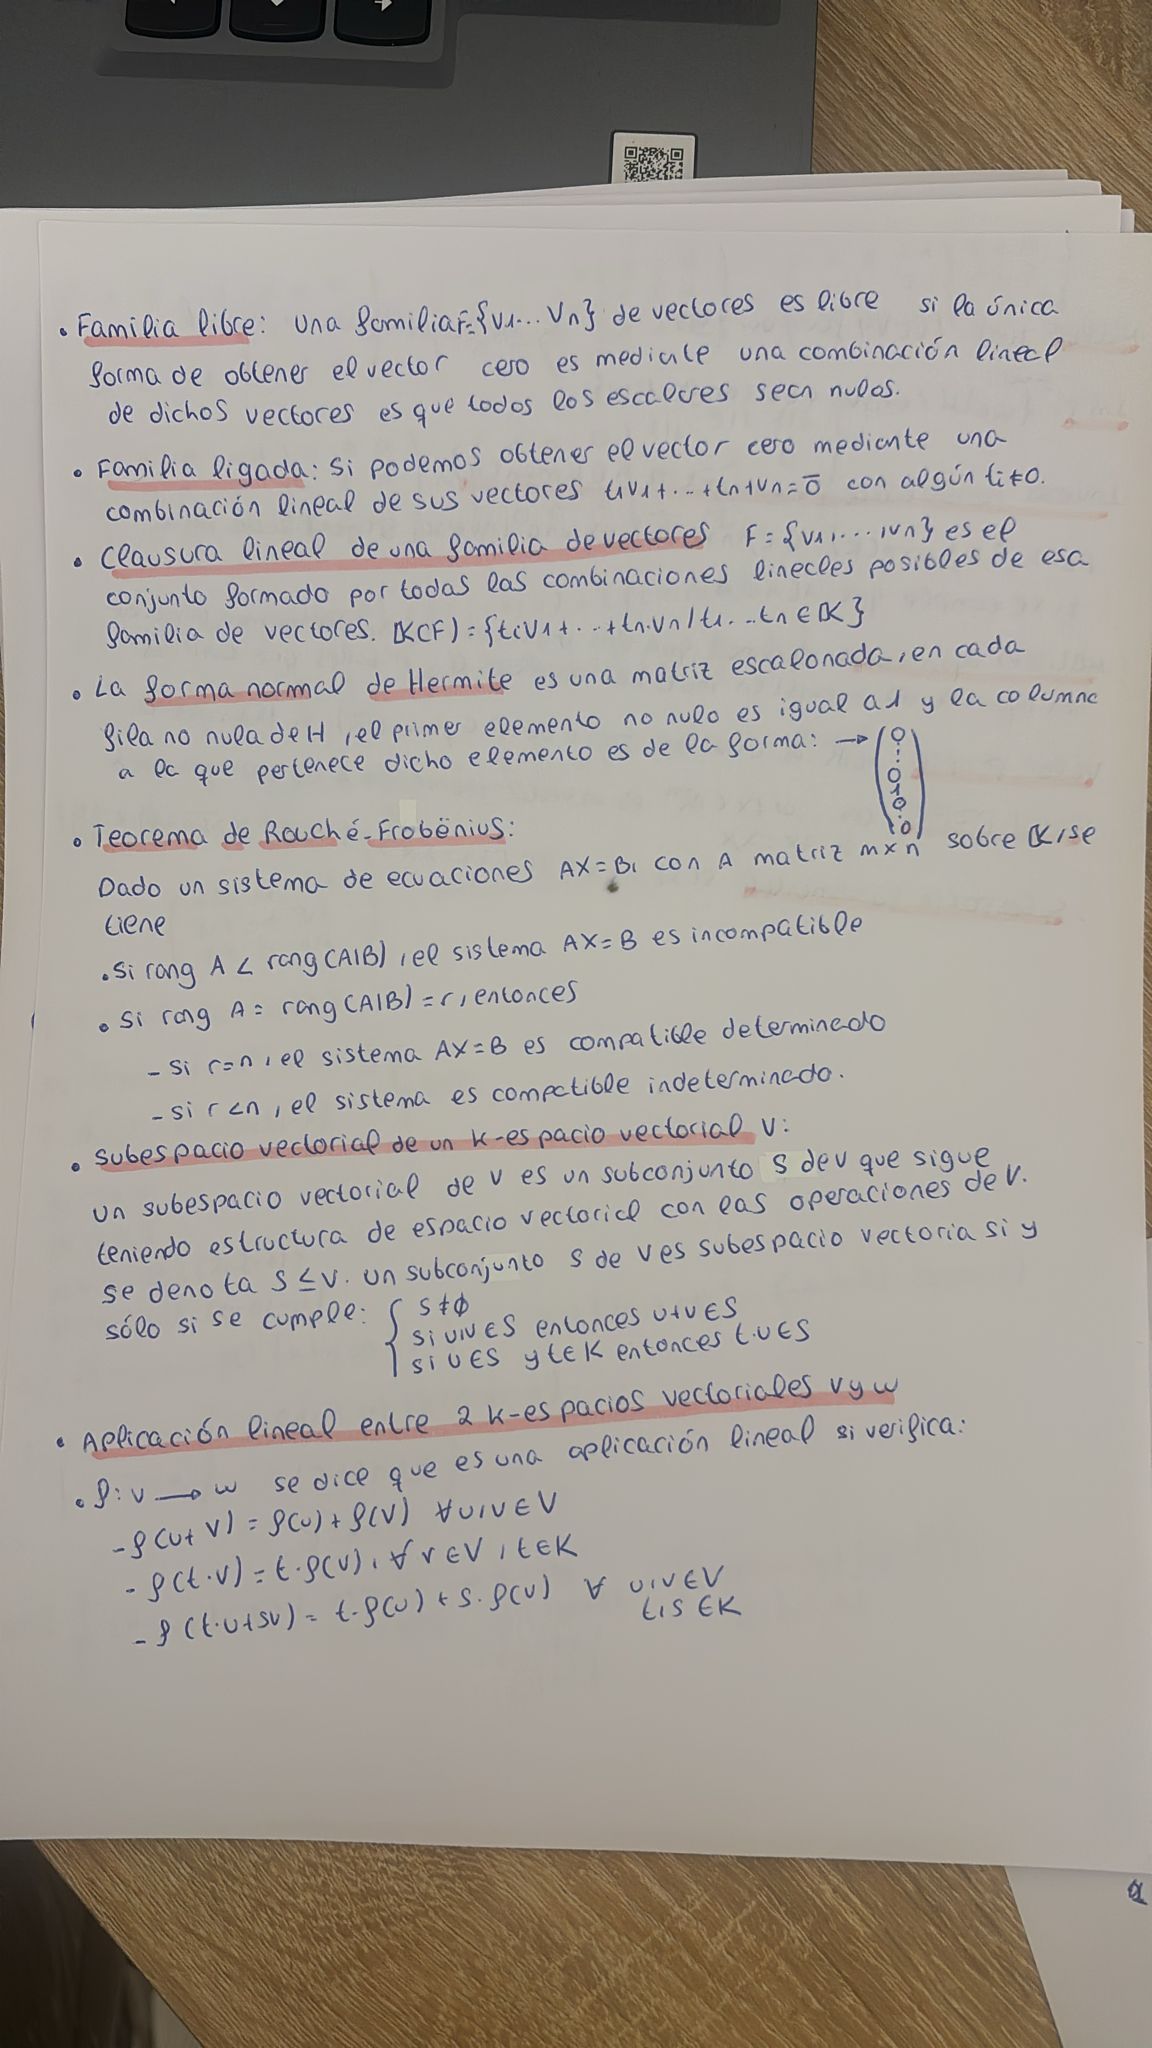 • Familia libre: una familia F={v1... Vn} de vectores es libre si la única
forma de obtener el vector cero es mediante una combinación lineal
de dichos vectores es que todos los escalares sean nulos.
• Familia ligada: Si podemos obtener el vector cero mediante una
combinación lineal de sus vectores t1v1+...+tn+vn=0̅ con algún ti≠0.
• Clausura lineal de una familia de vectores F={v1,...,vn} es el
conjunto formado por todas las combinaciones lineales posibles de esa
familia de vectores. K(F)={t1v1+...+tn.vn/t1...tn∈K}
• La forma normal de Hermite es una matriz escalonada, en cada
fila no nula de H, el primer elemento no nulo es igual a 1 y la columna
a la que pertenece dicho elemento es de la forma: → (0 ⋮ 0 1 0 ⋮ 0)
• Teorema de Rouché-Frobënius:
Dado un sistema de ecuaciones AX=B, con A matriz m×n sobre K, se
tiene
• Si rang A < rang(A|B), el sistema AX=B es incompatible
• Si rang A = rang(A|B)=r, entonces
- Si r=n, el sistema AX=B es compatible determinado
- si r<n, el sistema es compatible indeterminado.
• Subespacio vectorial de un K-espacio vectorial V:
un subespacio vectorial de V es un subconjunto S de V que sigue
teniendo estructura de espacio vectorial con las operaciones de V.
se denota S≤V. un subconjunto S de V es subespacio vectoria si y
sólo si se cumple: { S≠∅
si u,v∈S entonces u+v∈S
si u∈S y t∈K entonces t.u∈S
• Aplicación lineal entre 2 K-espacios vectoriales V y W
• f:V→W se dice que es una aplicación lineal si verifica:
- f(u+v)=f(u)+f(v) ∀u,v∈V
- f(t.v)=t.f(v), ∀v∈V, t∈K
- f(t.u+sv)= t.f(u)+s.f(v) ∀ u,v∈V
t,s∈K